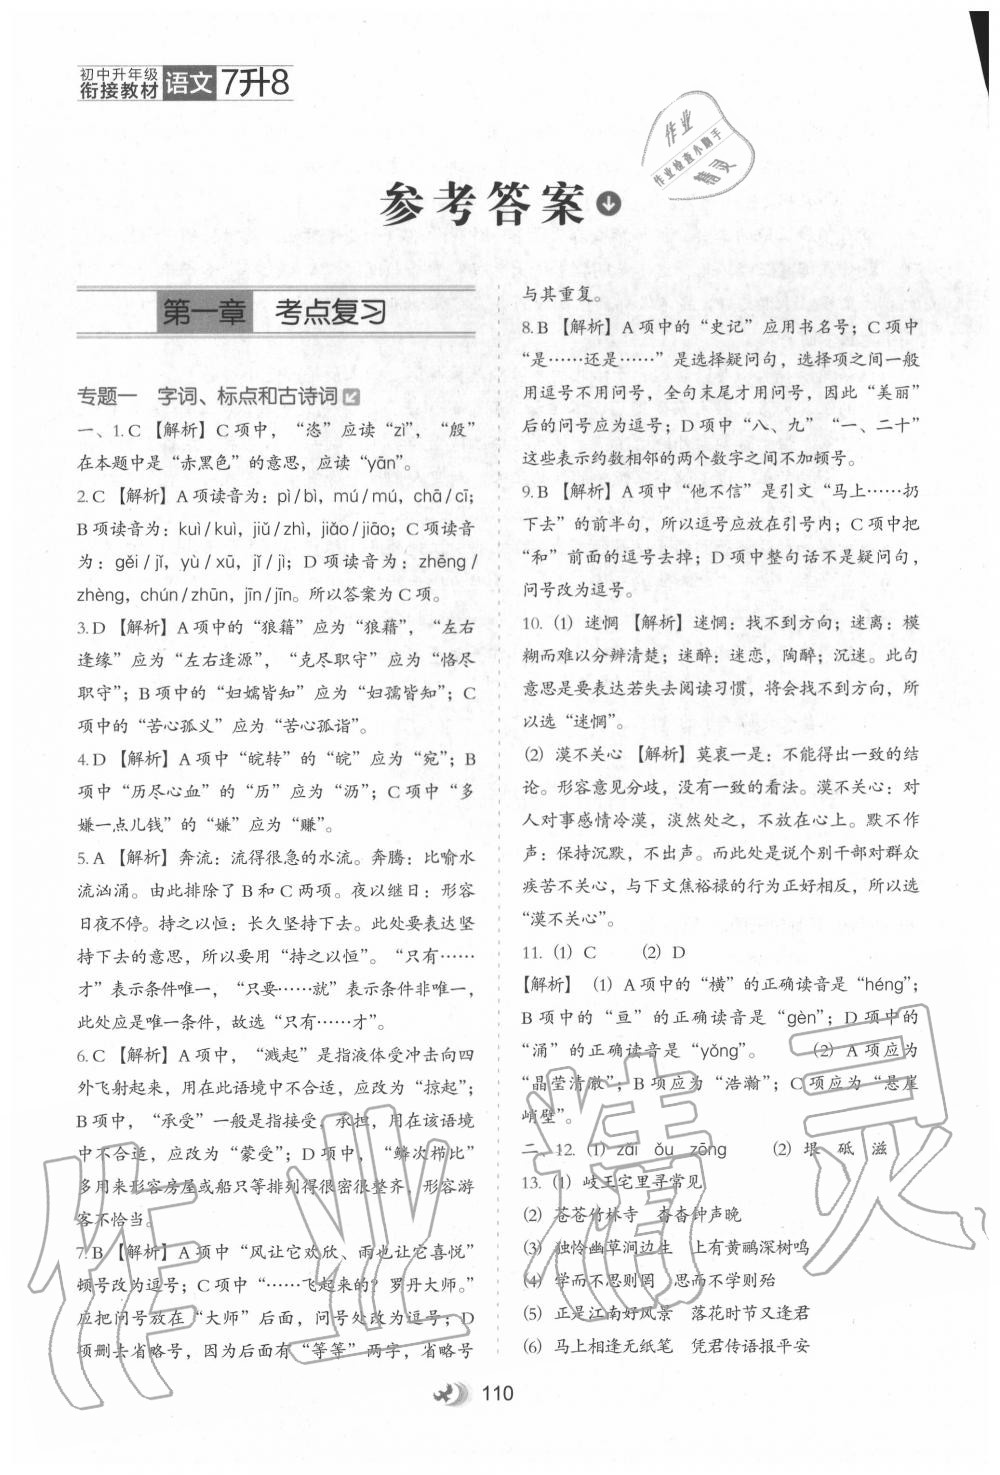 初中升年级
衔接教材 语文 7升8
作业
作业检查小助手
精灵
参考答案
第一章 考点复习
专题一 字词、标点和古诗词
一、1.C【解析】C项中，“恣”应读“zì”，“殷”
在本题中是“赤黑色”的意思，应读“yān”。
2.C【解析】A项读音为：pì/bì，mú/mú，chā/cī；
B项读音为：kuì/kuì，jiǔ/zhì，jiǎo/jiāo；C项读音
为：gěi/jǐ，yù/xū，jǐ/jì；D项读音为：zhēng/
zhèng，chún/zhūn，jīn/jīn。所以答案为C项。
3.D【解析】A项中的“狼藉”应为“狼藉”，“左右
逢缘”应为“左右逢源”，“克尽职守”应为“恪尽
职守”；B项中的“妇嬬皆知”应为“妇孺皆知”；C
项中的“苦心孤义”应为“苦心孤诣”。
4.D【解析】A项中“皖转”的“皖”应为“宛”；B
项中“历尽心血”的“历”应为“沥”；C项中“多
嫌一点儿钱”的“嫌”应为“赚”。
5.A【解析】奔流：流得很急的水流。奔腾：比喻水
流汹涌。由此排除了B和C两项。夜以继日：形容
日夜不停。持之以恒：长久坚持下去。此处要表达坚
持下去的意思，所以要用“持之以恒”。“只有……
才”表示条件唯一，“只要……就”表示条件非唯一，
此处应是唯一条件，故选“只有……才”。
6.C【解析】A项中，“溅起”是指液体受冲击向四
外飞射起来，用在此语境中不合适，应改为“掠起”；
B项中，“承受”一般是指接受、承担，用在该语境
中不合适，应改为“蒙受”；D项中，“鳞次栉比”
多用来形容房屋或船只等排列得很密很整齐，形容游
客不恰当。
7.B【解析】A项中“风让它欢欣、雨也让它喜悦”
顿号改为逗号；C项中“……飞起来的？罗丹大师。”
应把问号放在“大师”后面，问号处改为逗号；D
项删去省略号，因为后面有“等等”两字，省略号
与其重复。
8.B【解析】A项中的“史记”应用书名号；C项中
“是……还是……”是选择疑问句，选择项之间一般
用逗号不用问号，全句末尾才用问号，因此“美丽”
后的问号应为逗号；D项中“八、九”“一、二十”
这些表示约数相邻的两个数字之间不加顿号。
9.B【解析】A项中“他不信”是引文“马上……扔
下去”的前半句，所以逗号应放在引号内；C项中把
“和”前面的逗号去掉；D项中整句话不是疑问句，
问号改为逗号。
10.（1）迷惘【解析】迷惘：找不到方向；迷离：模
糊而难以分辨清楚；迷醉：迷恋，陶醉；沉迷。此句
意思是要表达若失去阅读习惯，将会找不到方向，所
以选“迷惘”。
（2）漠不关心【解析】莫衷一是：不能得出一致的结
论。形容意见分歧，没有一致的看法。漠不关心：对
人对事感情冷漠，淡然处之，不放在心上。默不作
声：保持沉默，不出声。而此处是说个别干部对群众
疾苦不关心，与下文焦裕禄的行为正好相反，所以选
“漠不关心”。
11.（1）C （2）D
【解析】（1）A项中的“横”的正确读音是“héng”；
B项中的“亘”的正确读音是“gèn”；D项中的
“涌”的正确读音是“yǒng”。 （2）A项应为
“晶莹清澈”；B项应为“浩瀚”；C项应为“悬崖
峭壁”。
二、12.（1）zāi ǒu zōng （2）垠 砥 滋
13.（1）岐王宅里寻常见
（2）苍苍竹林寺 杳杳钟声晚
（3）独怜幽草涧边生 上有黄鹂深树鸣
（4）学而不思则罔 思而不学则殆
（5）正是江南好风景 落花时节又逢君
（6）马上相逢无纸笔 凭君传语报平安
作业精灵
110